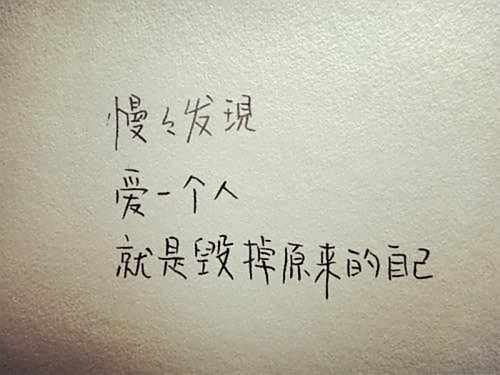 慢々发現
爱一个人
就是毀掉原来的自己